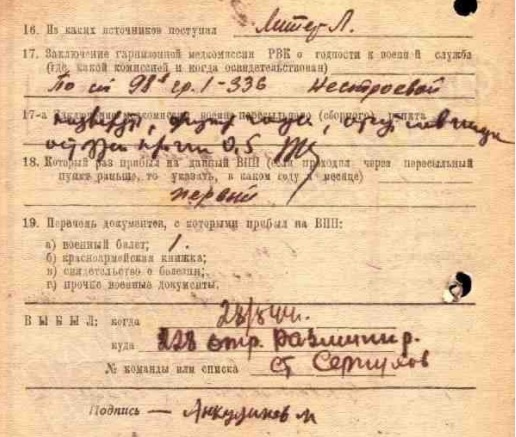 16. Из каких источников поступил Литер Л.
17. Заключение гарнизонной медкомиссии РВК о годности к военной службе
(где, какой комиссией и когда освидетельствован)
По ст 98 гр. 1-336 Нестроевой
17-а Заключение медкомиссии военно-пересыльного (сборного) пункта
0,5
18. Который раз прибыл на данный ВПП (если проходил через пересыльный
пункт раньше, то указать, в каком году и месяце)
первый
19. Перечень документов, с которыми прибыл на ВПП:
а) военный билет; 1.
б) красноармейская книжка;
в) свидетельство о болезни;
г) прочие военные документы.
ВЫБЫЛ: когда
куда 228 отр.
№ команды или списка ст Серпухов
Подпись — Анкудинов